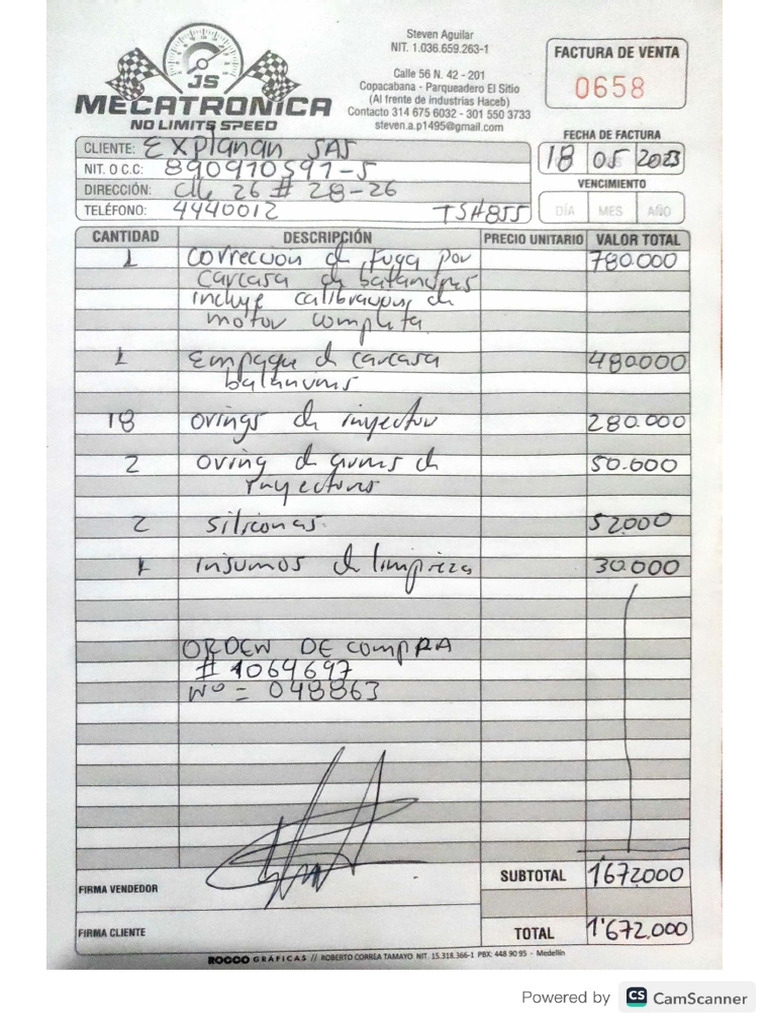 Steven Aguilar
NIT. 1.036.659.263-1
Calle 56 N. 42 - 201
Copacabana - Parqueadero El Sitio
(Al frente de industrias Haceb)
Contacto 314 675 6032 - 301 550 3733
steven.a.p1495@gmail.com
JS
MECATRONICA
NO LIMITS SPEED
FACTURA DE VENTA
0658
FECHA DE FACTURA
18 05 2023
VENCIMIENTO
DÍA MES AÑO
CLIENTE: Explanan SAS
NIT. O C.C: 890910591-5
DIRECCIÓN: Clle 26 # 28-26
TELÉFONO: 4440012 TSH855
CANTIDAD DESCRIPCIÓN PRECIO UNITARIO VALOR TOTAL
1 Corrección de fuga por 780.000
carcasa de balancines
incluye calibracion de
motor completa
1 Empaque de carcasa 480.000
balancines
18 orings de inyector 280.000
2 oring de de 50.000
inyectores
2 siliconas. 52000
1 insumos de limpieza 30.000
ORDEN DE COMPRA
# 1064697
Nº = 048863
SUBTOTAL 1672000
TOTAL 1'672.000
FIRMA VENDEDOR
FIRMA CLIENTE
ROGCO GRÁFICAS // ROBERTO CORREA TAMAYO NIT. 15.318.366-1 PBX: 448 90 95 - Medellín
Powered by CS CamScanner